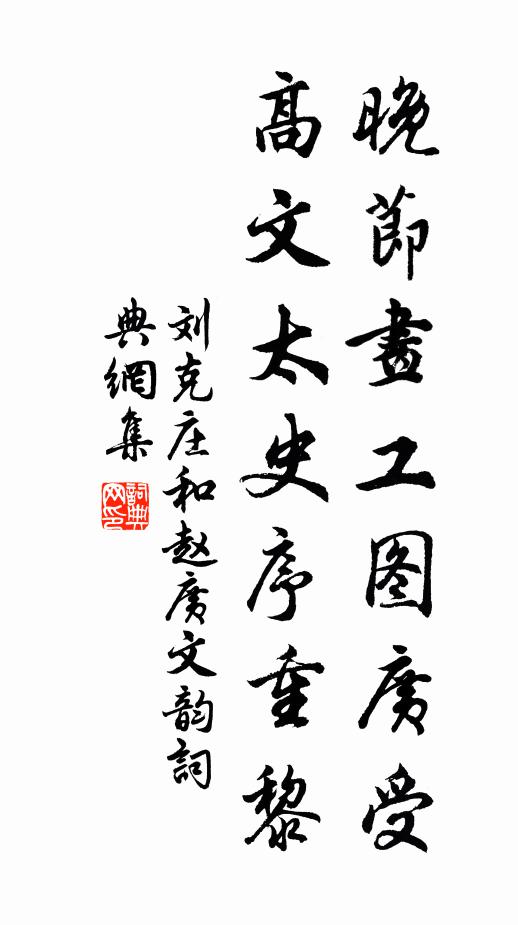 晚節畫工图廣受
高文太史序重黎
刘克庄和赵廣文韵詞
典網集
詞典网印